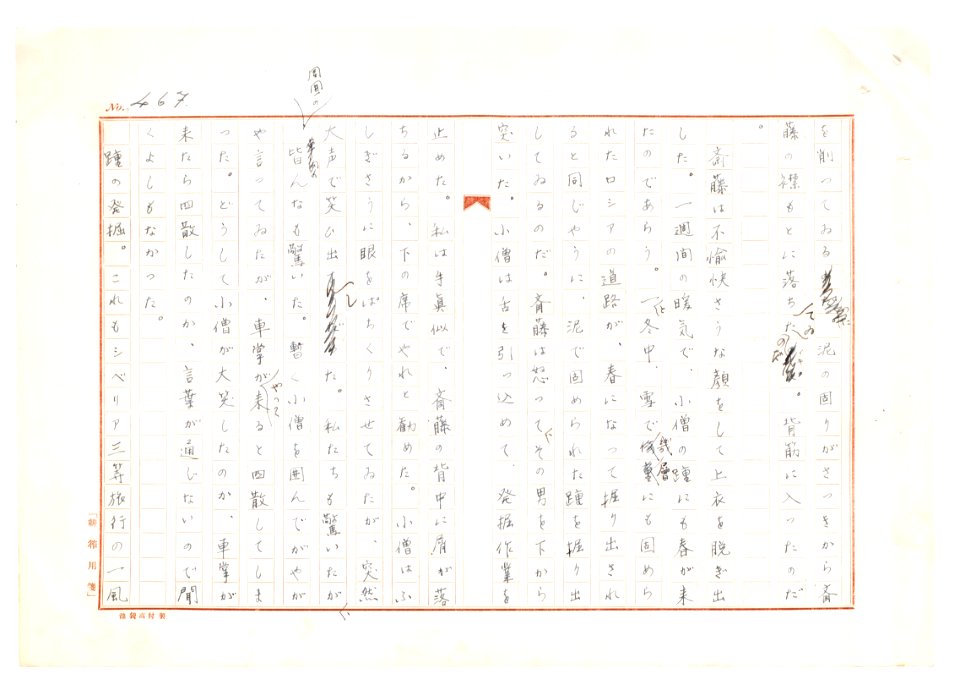 No. 467
を削つてゐる泥の固りがさつきから斎
藤の襟もとに落ちてゐたのだ。背筋に入つたのだ
。
斎藤は不愉快さうな顔をして上衣を脱ぎ出
した。一週間の暖気で、小僧の踵にも春が来
たのであらう。冬中、雪で幾層にも固めら
れたロシアの道路が、春になつて掘り出され
ると同じやうに、泥で固められた踵を掘り出
してゐるのだ。斎藤は怒つて、その男を下から
突いた。小僧は舌を引つ込めて、発掘作業を
止めた。私は手真似で、斎藤の背中に屑が落
ちるから、下の席でやれと勧めた。小僧はふ
しぎさうに眼をぱちくりさせてゐたが、突然
大声で笑ひ出した。私たちも驚いたが、
周囲の皆んなも驚いた。暫く小僧を囲んでがやが
や言つてゐたが、車掌がやつて来ると四散してしま
つた。どうして小僧が大笑したのか、車掌が
来たら四散したのか、言葉が通じないので聞
くよしもなかつた。
踵の発掘。これもシベリア三等旅行の一風
用箋